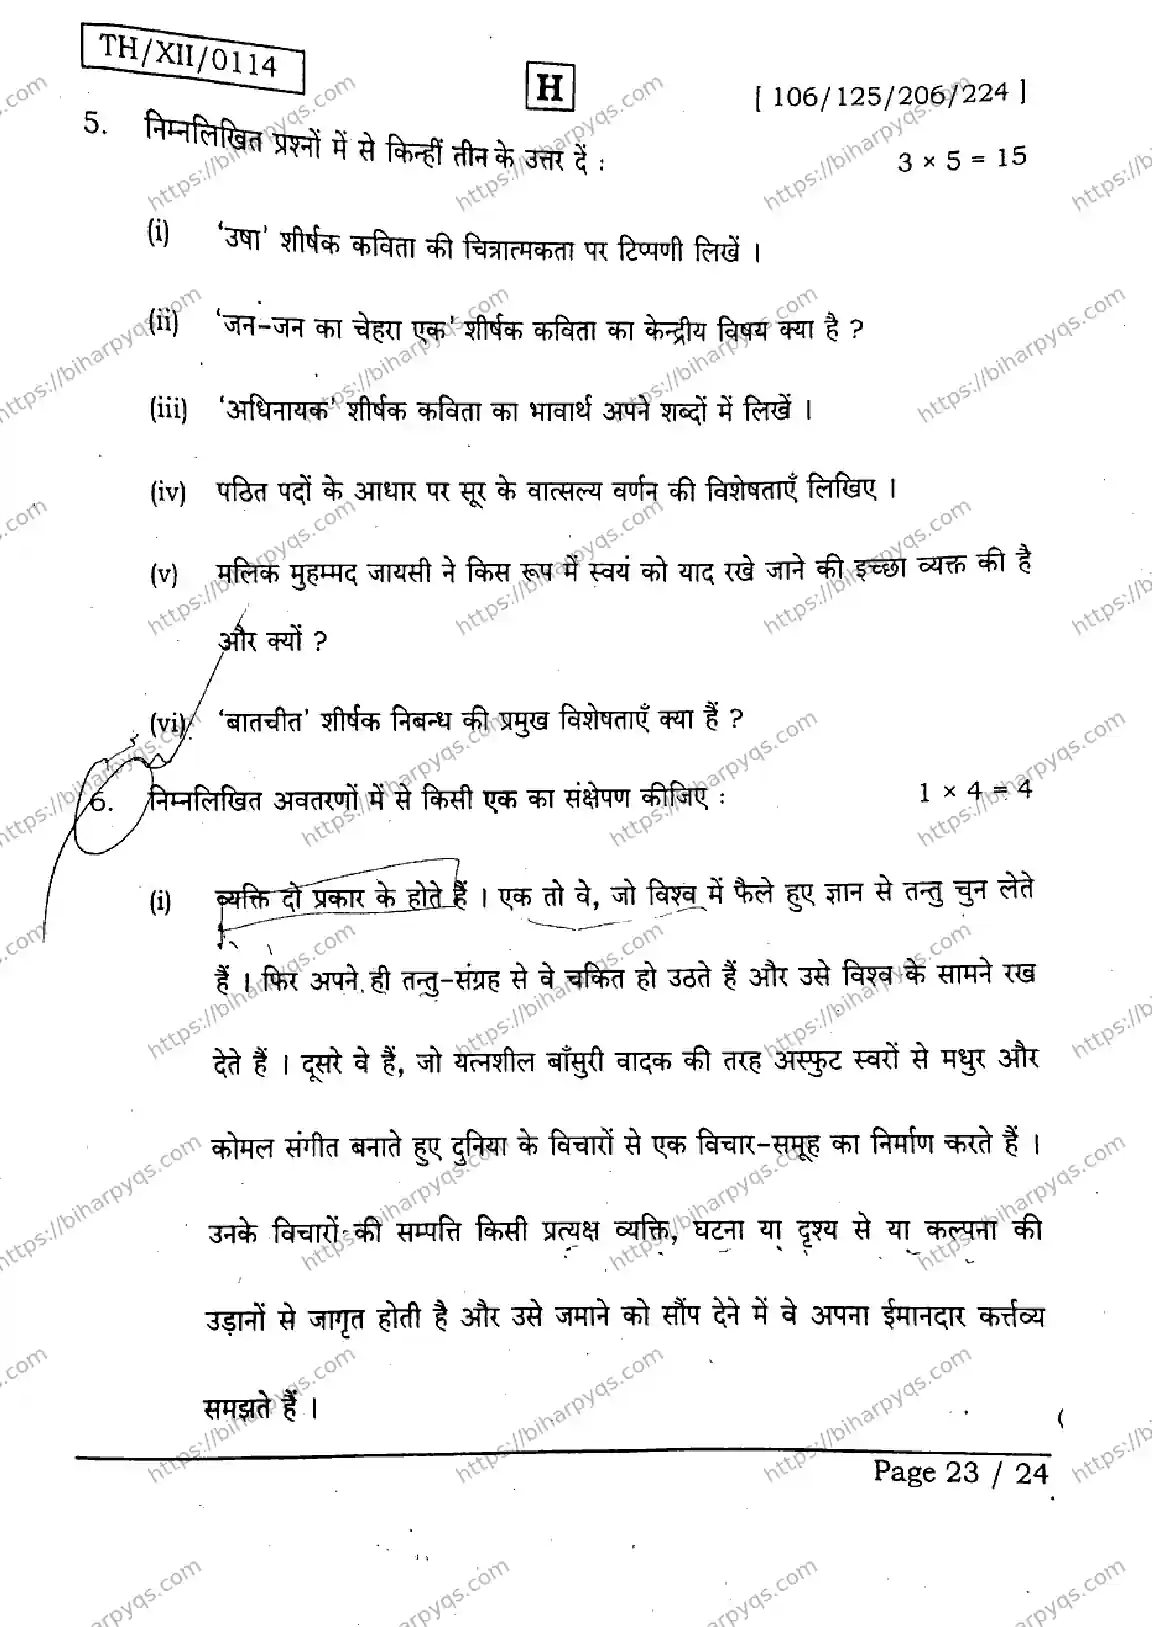 TH/XII/0114
H
[ 106/125/206/224 ]
5. निम्नलिखित प्रश्नों में से किन्हीं तीन के उत्तर दें : 3 × 5 = 15
(i) 'उषा' शीर्षक कविता की चित्रात्मकता पर टिप्पणी लिखें ।
(ii) 'जन-जन का चेहरा एक' शीर्षक कविता का केन्द्रीय विषय क्या है ?
(iii) 'अधिनायक' शीर्षक कविता का भावार्थ अपने शब्दों में लिखें ।
(iv) पठित पदों के आधार पर सूर के वात्सल्य वर्णन की विशेषताएँ लिखिए ।
(v) मलिक मुहम्मद जायसी ने किस रूप में स्वयं को याद रखे जाने की इच्छा व्यक्त की है
और क्यों ?
(vi) 'बातचीत' शीर्षक निबन्ध की प्रमुख विशेषताएँ क्या हैं ?
6. निम्नलिखित अवतरणों में से किसी एक का संक्षेपण कीजिए : 1 × 4 = 4
(i) व्यक्ति दो प्रकार के होते हैं । एक तो वे, जो विश्व में फैले हुए ज्ञान से तन्तु चुन लेते
हैं । फिर अपने ही तन्तु-संग्रह से वे चकित हो उठते हैं और उसे विश्व के सामने रख
देते हैं । दूसरे वे हैं, जो यत्नशील बाँसुरी वादक की तरह अस्फुट स्वरों से मधुर और
कोमल संगीत बनाते हुए दुनिया के विचारों से एक विचार-समूह का निर्माण करते हैं ।
उनके विचारों की सम्पत्ति किसी प्रत्यक्ष व्यक्ति, घटना या दृश्य से या कल्पना की
उड़ानों से जागृत होती है और उसे जमाने को सौंप देने में वे अपना ईमानदार कर्त्तव्य
समझते हैं ।
Page 23 / 24
https://biharpyqs.com